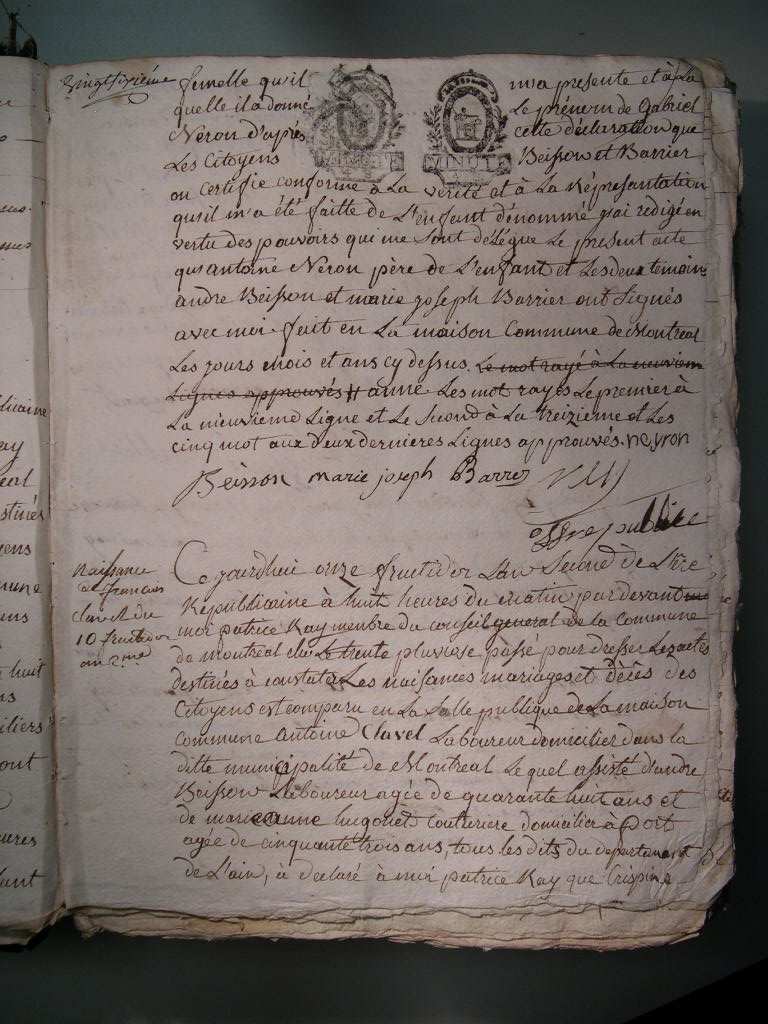 vingtsixiéme
femelle qu'il m'a presente et à La
quelle il a donné Le prénom de Gabriel
Neron d'après cette déclaration que
Les Citoyens Beisson et Barrier
on certifié conforme à La verité et à La Réprésantation
qu'il m'a été faitte de L'enfant dénommé j'ai redigé en
vertu des pouvoirs qui me sont délégue Le present acte
qu'antoine Neron père de L'enfant et Les deux temoins
andre Beisson et marie joseph Barrier ont Signés
avec moi. fait en La maison Commune de Montreal
Les jours mois et ans cy dessus. Le mot rayé à La neuviem
Lignes approuvés # anne Les mot rayes Le premier à
La nieuvieme Ligne et Le Second à La treizieme et Les
cinq mot aux deux dernieres Lignes approuvés. neyron
Beisson marie joseph Barrer
off re publice
Naissance
de francois
clavel du
10 fruitidor
an 2.me
Ce jourdhui onze fructidor L'an Second de L'Ere
Républicaine à huit heures du matin par devant
moi patrice Ray menbre du conseil general de la commune
de montreal élu Le trente pluviose passé pour dresser Les actes
destinés à constater Les naisances mariages et décès des
Citoyens est comparu en La Salle publique de La maison
commune Antoine Clavel Laboureur domicilier dans la
ditte municipalité de Montreal Le quel assisté d'andre
Beisson Laboureur agée de quarante huit ans et
de marieanne hugonet couturiere domicilier à port
agée de cinquante trois ans, tous les dits du departement
de L'ain, à declaré à moi patrice Ray que Crispine